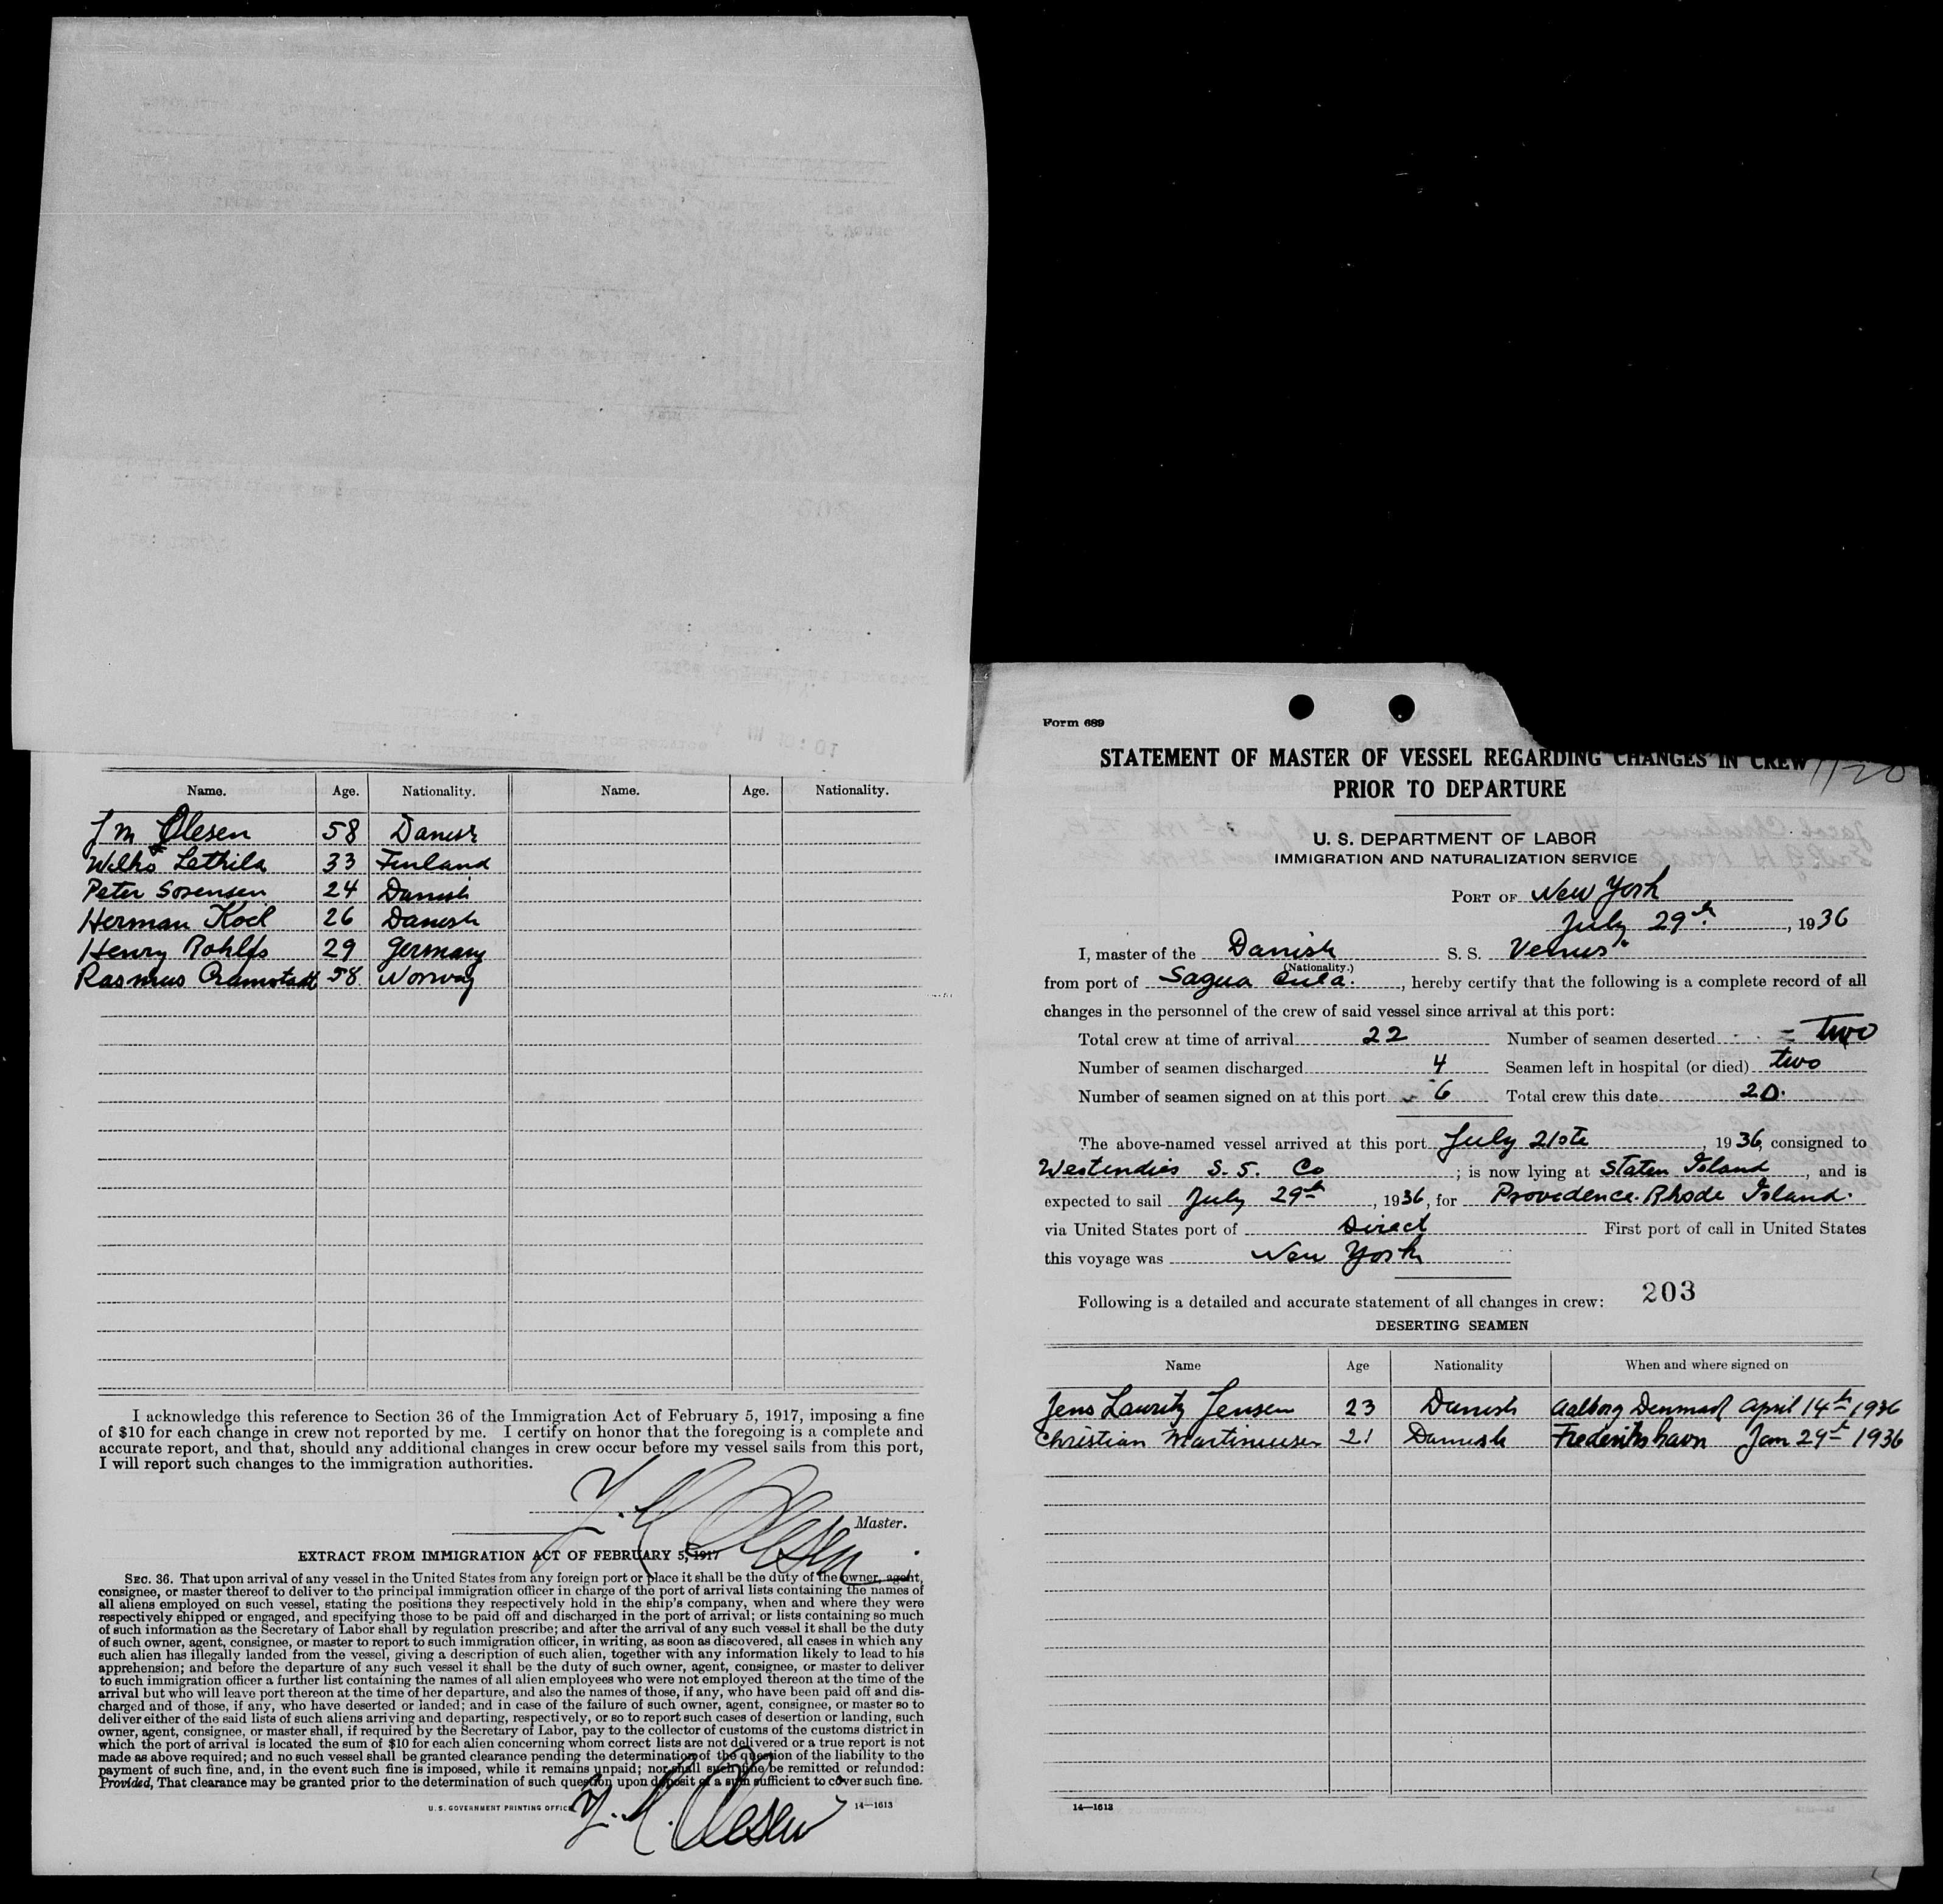 Name. Age. Nationality. Name. Age. Nationality.
J M Olesen 58 Danish
Wilho Lethila 33 Finland
Peter Sorensen 24 Danish
Herman Kock 26 Danish
Henry Rohlfs 29 Germany
Rasmus 58 Norway
I acknowledge this reference to Section 36 of the Immigration Act of February 5, 1917, imposing a fine
of $10 for each change in crew not reported by me. I certify on honor that the foregoing is a complete and
accurate report, and that, should any additional changes in crew occur before my vessel sails from this port,
I will report such changes to the immigration authorities.
Olesen
Master.
EXTRACT FROM IMMIGRATION ACT OF FEBRUARY 5, 1917
SEC. 36. That upon arrival of any vessel in the United States from any foreign port or place it shall be the duty of the owner, agent,
consignee, or master thereof to deliver to the principal immigration officer in charge of the port of arrival lists containing the names of
all aliens employed on such vessel, stating the positions they respectively hold in the ship's company, when and where they were
respectively shipped or engaged, and specifying those to be paid off and discharged in the port of arrival; or lists containing so much
of such information as the Secretary of Labor shall by regulation prescribe; and after the arrival of any such vessel it shall be the duty
of such owner, agent, consignee, or master to report to such immigration officer, in writing, as soon as discovered, all cases in which any
such alien has illegally landed from the vessel, giving a description of such alien, together with any information likely to lead to his
apprehension; and before the departure of any such vessel it shall be the duty of such owner, agent, consignee, or master to deliver
to such immigration officer a further list containing the names of all alien employees who were not employed thereon at the time of the
arrival but who will leave port thereon at the time of her departure, and also the names of those, if any, who have been paid off and dis-
charged and of those, if any, who have deserted or landed; and in case of the failure of such owner, agent, consignee, or master so to
deliver either of the said lists of such aliens arriving and departing, respectively, or so to report such cases of desertion or landing, such
owner, agent, consignee, or master shall, if required by the Secretary of Labor, pay to the collector of customs of the customs district in
which the port of arrival is located the sum of $10 for each alien concerning whom correct lists are not delivered or a true report is not
made as above required; and no such vessel shall be granted clearance pending the determination of the question of the liability to the
payment of such fine, and, in the event such fine is imposed, while it remains unpaid; nor shall such fine be remitted or refunded:
Provided, That clearance may be granted prior to the determination of such question upon deposit of a sum sufficient to cover such fine.
U. S. GOVERNMENT PRINTING OFFICE 14—1613
Olesen
Form 689
STATEMENT OF MASTER OF VESSEL REGARDING CHANGES IN CREW
PRIOR TO DEPARTURE
U. S. DEPARTMENT OF LABOR
IMMIGRATION AND NATURALIZATION SERVICE
PORT OF New York
July 29th, 1936
I, master of the Danish S. S. Venus
(Nationality.)
from port of Sagua Cuba., hereby certify that the following is a complete record of all
changes in the personnel of the crew of said vessel since arrival at this port:
Total crew at time of arrival 22 Number of seamen deserted two
Number of seamen discharged 4 Seamen left in hospital (or died) two
Number of seamen signed on at this port 6 Total crew this date 20.
The above-named vessel arrived at this port July 21ste, 1936, consigned to
Westindies S. S. Co; is now lying at Staten Island, and is
expected to sail July 29th, 1936, for Providence. Rhode Island.
via United States port of Direct First port of call in United States
this voyage was New York
203
Following is a detailed and accurate statement of all changes in crew:
DESERTING SEAMEN
Name Age Nationality When and where signed on
Jens Lauritz Jensen 23 Danish Aalborg Denmark April 14th 1936
Christian Martinussen 21 Danish Frederikshavn Jan 29th 1936
14—1613